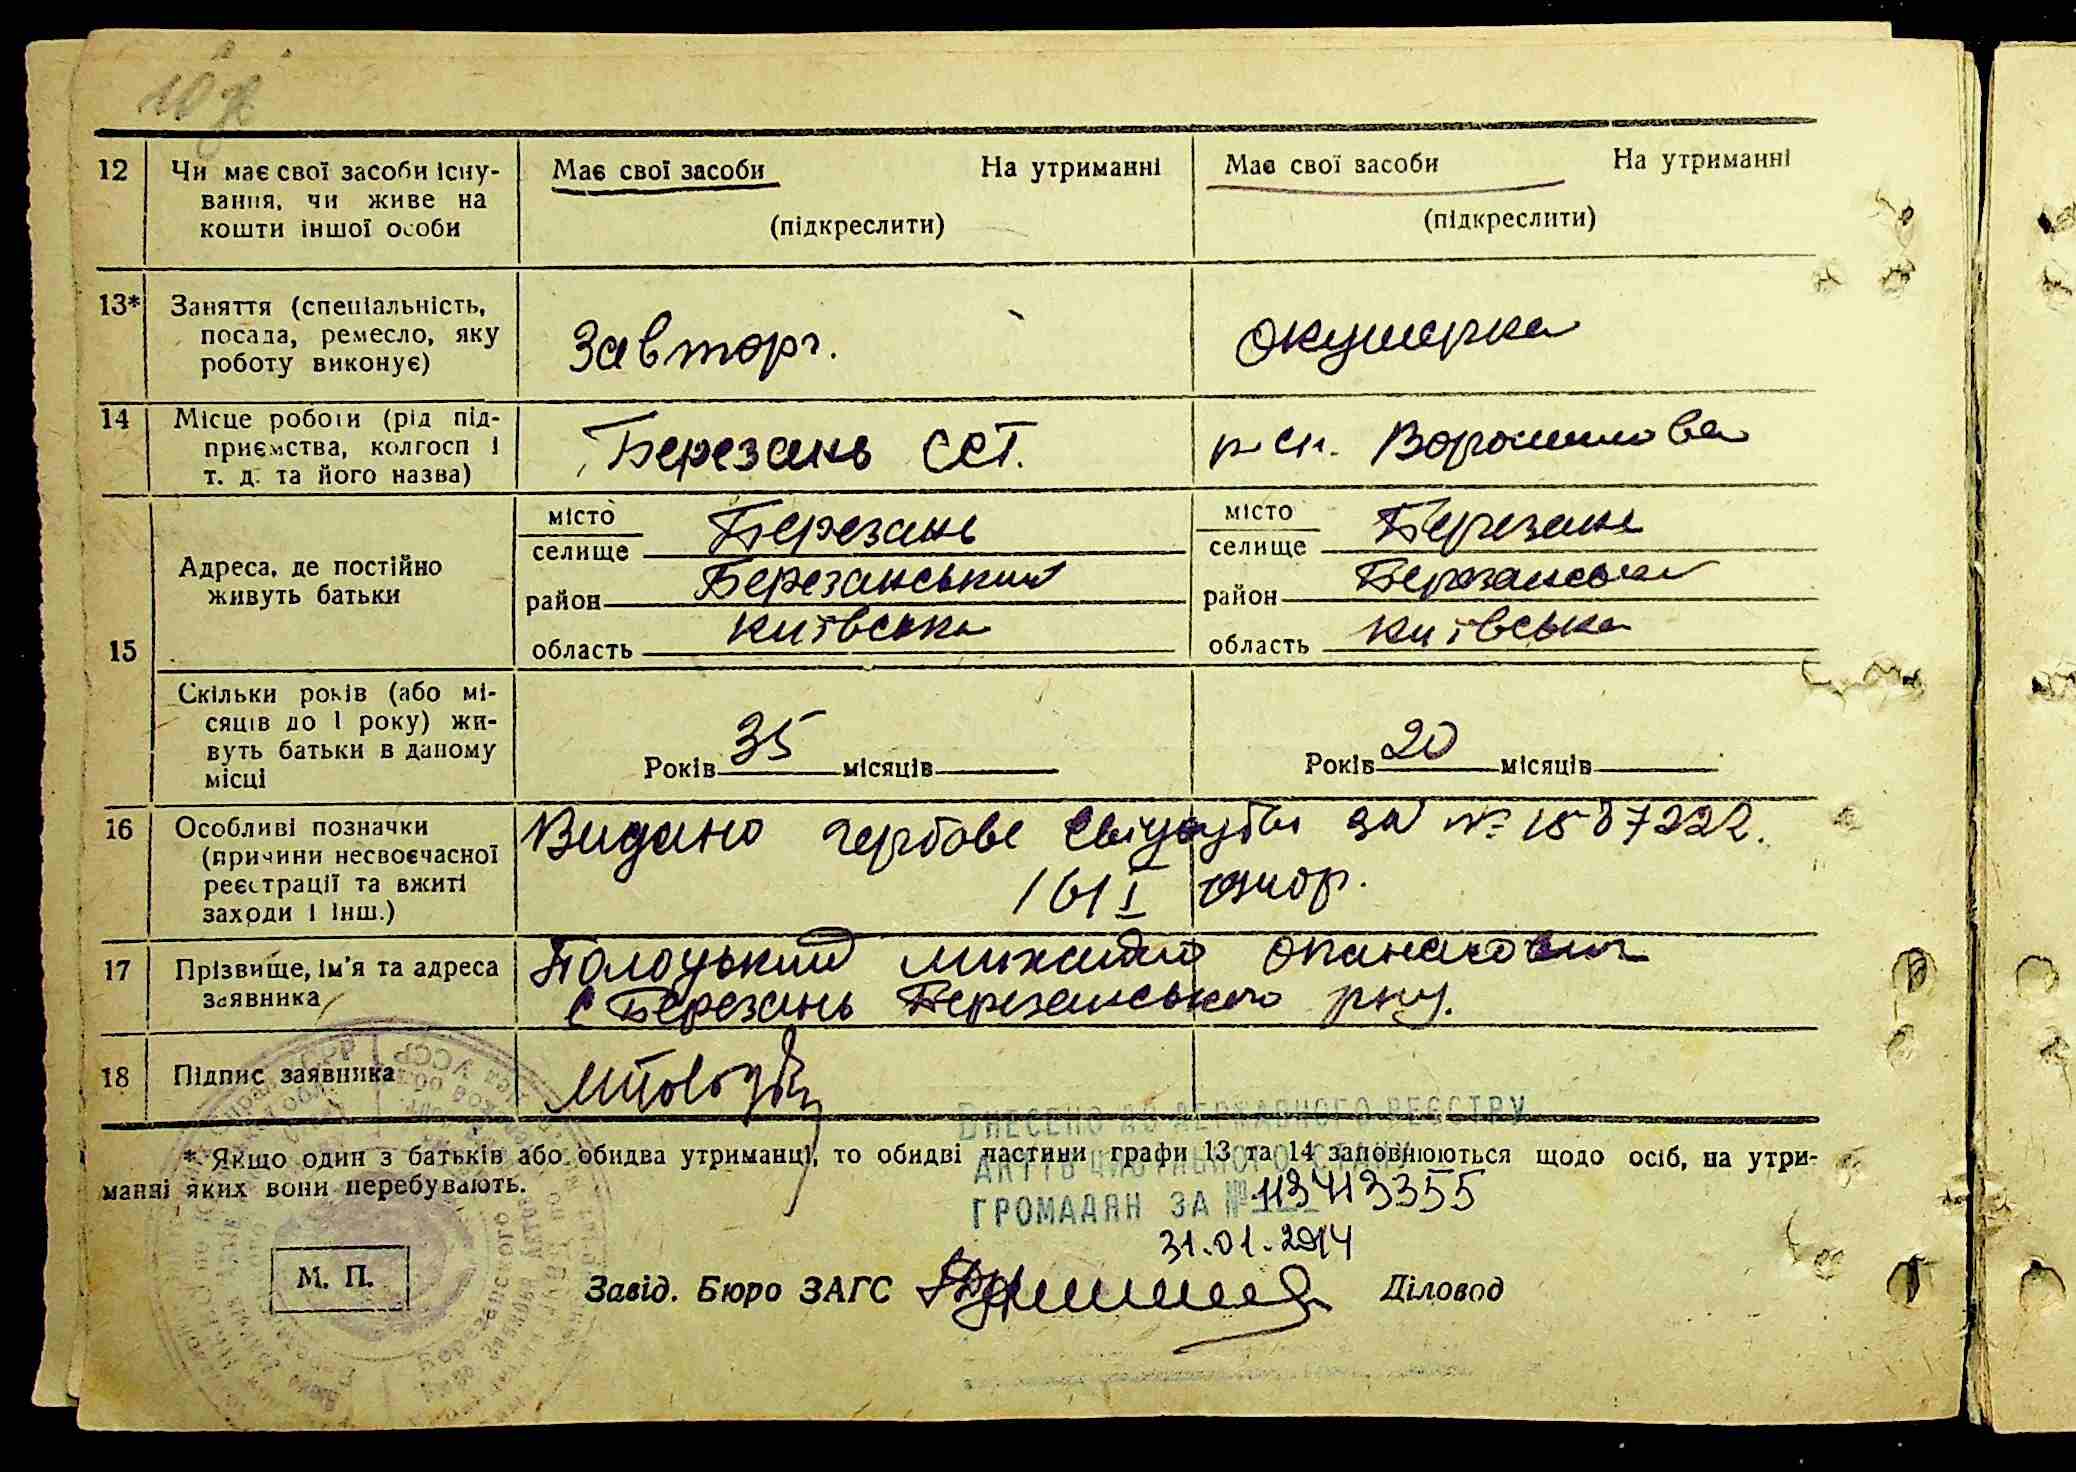 12
Чи має свої засоби існу-
вання, чи живе на
кошти іншої особи
Має свої засоби На утриманні
(підкреслити)
Має свої засоби На утриманні
(підкреслити)
13*
Заняття (спеціальність,
посада, ремесло, яку
роботу виконує)
Завторг.
Окушерка
14
Місце роботи (рід під-
приємства, колгосп і
т. д. та його назва)
Березань ССТ.
Ворошилова
15
Адреса, де постійно
живуть батьки
місто
селище Березань
район Березанський
область Київська
місто
селище Березань
район Березанський
область Київська
Скільки років (або мі-
сяців до 1 року) жи-
вуть батьки в даному
місці
Років 35 місяців
Років 20 місяців
16
Особливі позначки
(причини несвоєчасної
реєстрації та вжиті
заходи і інш.)
Видано гербове за № 1587222.
17
Прізвище, ім'я та адреса
заявника
Полоцький Михайло Опанасович
с Березань Березанського р-ну.
18
Підпис заявника
* Якщо один з батьків або обидва утриманці, то обидві частини графи 13 та 14 заповнюються щодо осіб, на утри-
манні яких вони перебувають.
ВНЕСЕНО ДО ДЕРЖАВНОГО РЕЄСТРУ
АКТІВ ЦИВІЛЬНОГО СТАНУ
ГРОМАДЯН ЗА № 113413355
31.01.2014
М. П.
Завід. Бюро ЗАГС Діловод